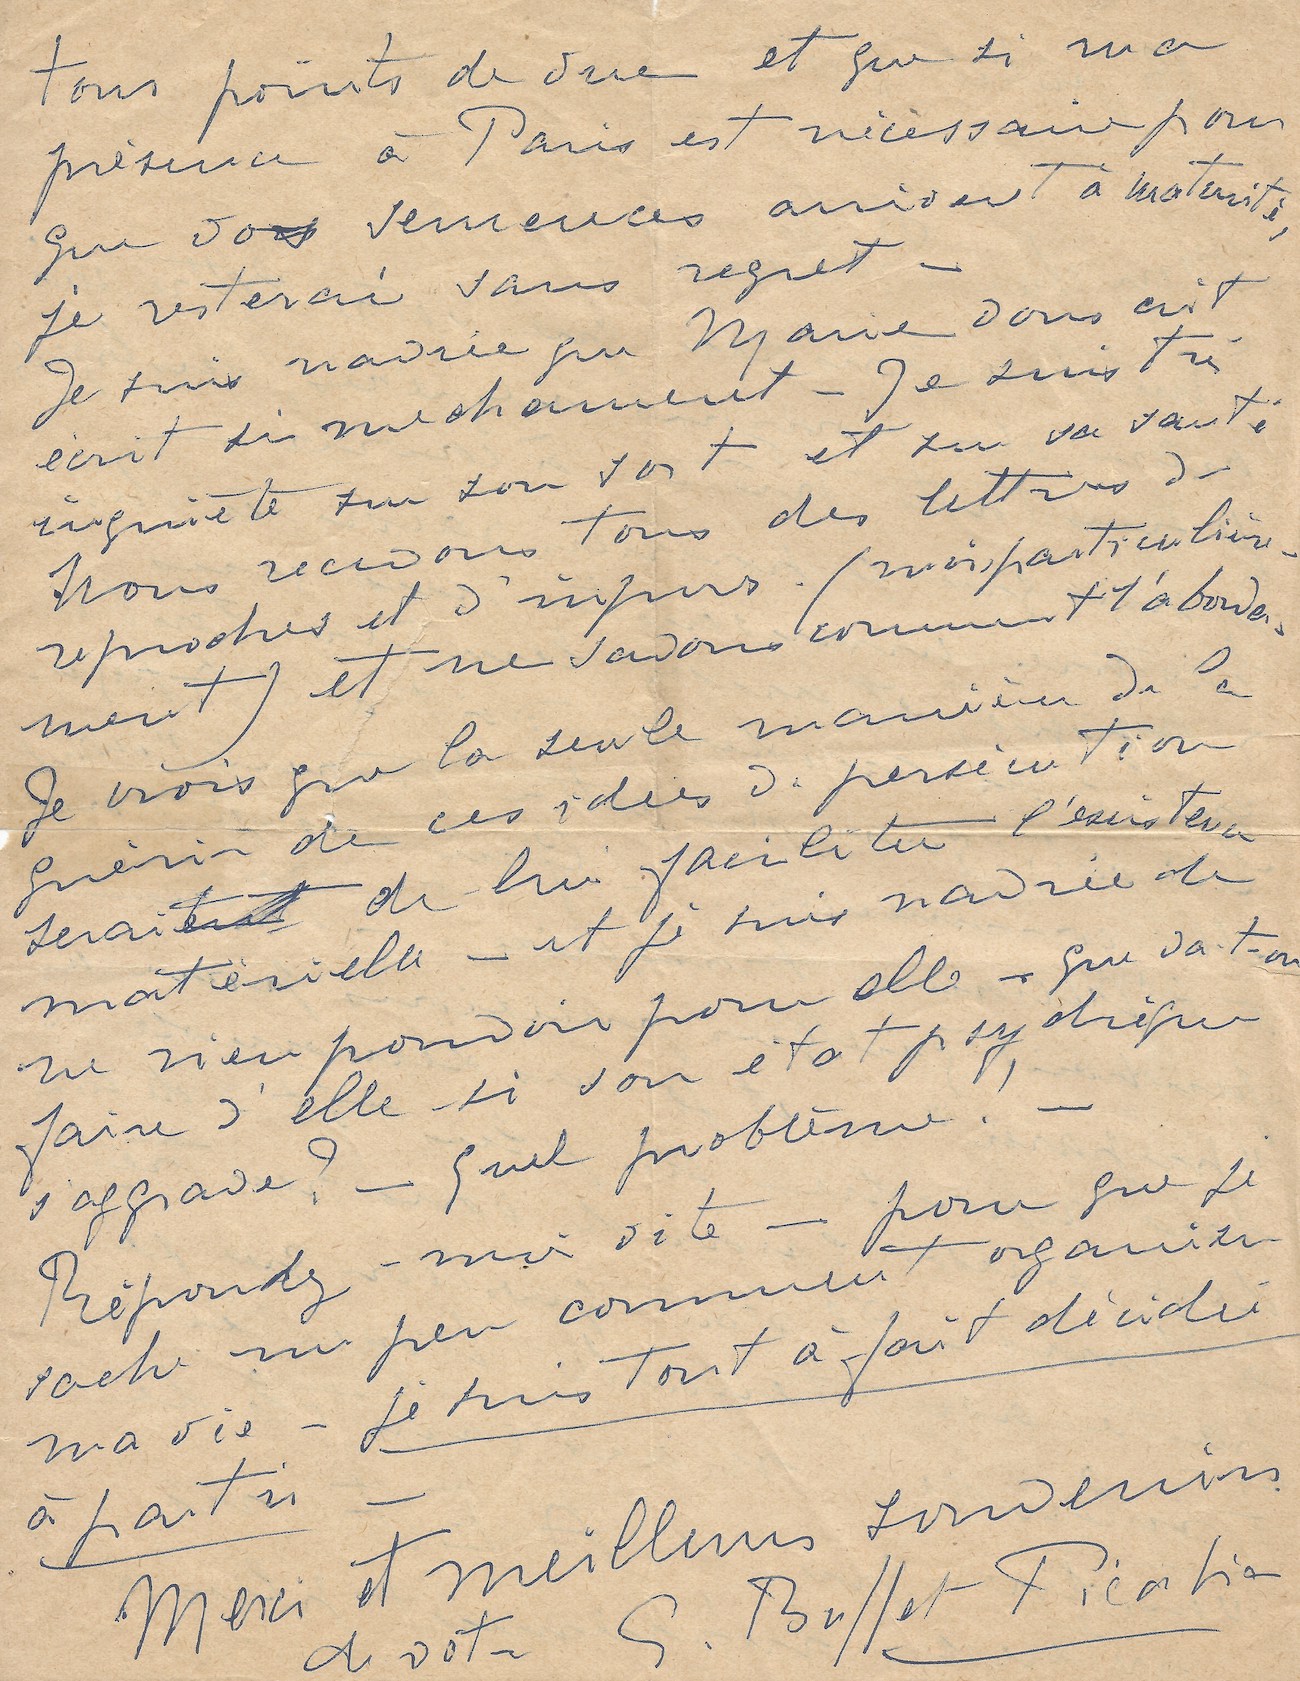 tous points de vue et que si ma
présence à Paris est nécessaire pour
que vos semences arrivent à maturité,
je resterai sans regret –
Je suis navrée que Marie vous ait
écrit si mechamment – Je suis très
inquiète sur son sort et sur sa santé
Nous recevons tous des lettres de
reproches et d'injures. (moi particulière-
ment) et ne savons comment l'aborder.
Je crois que la seule manière de la
guérir de ces idées de persécution
serait de lui faciliter l'existence
matérielle – et je suis navrée de
ne rien pouvoir pour elle – que va-t-on
faire d'elle si son état psychique
s'aggrave? – Quel problème! –
Répondez-moi vite – pour que je
sache un peu comment organiser
ma vie – je suis tout à fait décidée
à partir –
Merci et meilleurs souvenirs
de votre G. Buffet Picabia